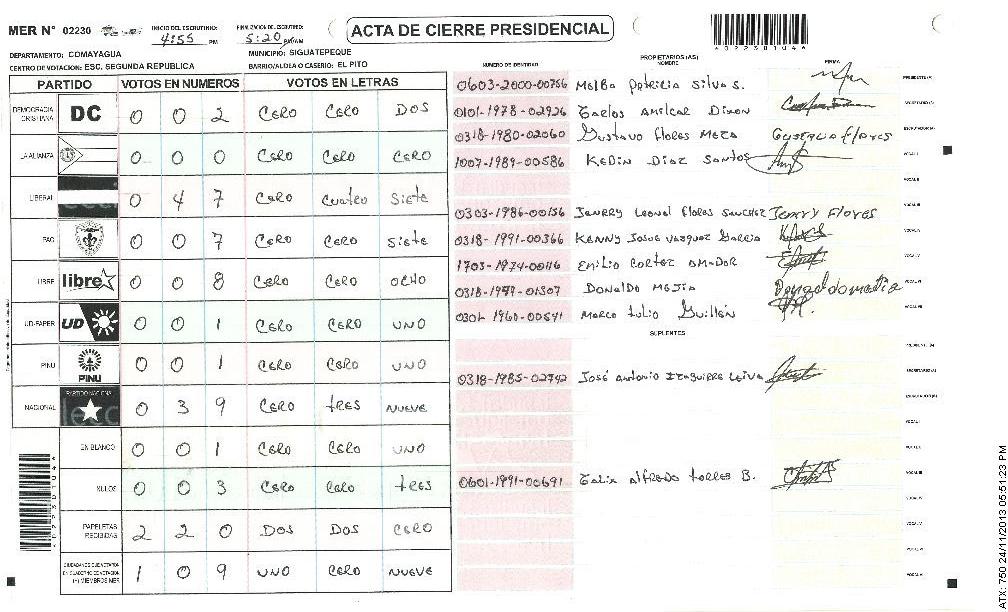 MER N° 02230
INICIO DEL ESCRUTINIO: 4:55 PM
FINALIZACION DEL ESCRUTINIO: 5:20 PM/AM
ACTA DE CIERRE PRESIDENCIAL
DEPARTAMENTO: COMAYAGUA
MUNICIPIO: SIGUATEPEQUE
CENTRO DE VOTACION: ESC. SEGUNDA REPUBLICA
BARRIO/ALDEA O CASERIO: EL PITO
PARTIDO VOTOS EN NUMEROS VOTOS EN LETRAS
DEMOCRACIA CRISTIANA DC 0 0 2 CERO CERO DOS
LA ALIANZA 0 0 0 CERO CERO CERO
LIBERAL 0 4 7 CERO CUATRO SIETE
PAC 0 0 7 CERO CERO SIETE
LIBRE libre 0 0 8 CERO CERO OCHO
UD-FAPER UD 0 0 1 CERO CERO UNO
PINU PINU 0 0 1 CERO CERO UNO
NACIONAL PARTIDO NACIONAL 0 3 9 CERO TRES NUEVE
EN BLANCO 0 0 1 CERO CERO UNO
NULOS 0 0 3 CERO CERO TRES
PAPELETAS RECIBIDAS 2 2 0 DOS DOS CERO
CIUDADANOS QUE VOTARON EN CUADERNO DE VOTACION (+) MIEMBROS MER 1 0 9 UNO CERO NUEVE
NUMERO DE IDENTIDAD
PROPIETARIOS (AS)
NOMBRE
FIRMA
0603-2000-00756 Melba Patricia Silva S. PRESIDENTE(A)
0101-1978-02926 Carlos Amilcar Dixon SECRETARIO(A)
0318-1980-02060 Gustavo Flores Meza Gustavo Flores ESCRUTADOR(A)
1007-1989-00586 Kedin Diaz Santos VOCAL I
VOCAL II
0303-1986-00156 Jenrry Leonel Flores Sanchez Jenrry Flores VOCAL III
0318-1991-00366 Kenny Josue Vazquez Garcia VOCAL IV
1703-1974-00116 Emilio Cortez Amador VOCAL V
0318-1979-01307 Donaldo Mejia VOCAL VI
0301-1960-00541 Marco Tulio Guillén VOCAL VII
SUPLENTES
PRESIDENTE (A)
0318-1985-02742 José Antonio Izaguirre Leiva SECRETARIO(A)
ESCRUTADOR(A)
VOCAL I
VOCAL II
0601-1991-00691 Alfredo Torres B. VOCAL III
VOCAL IV
VOCAL V
VOCAL VI
VOCAL VII
ATX: 750 24/11/2013 05:51:23 PM